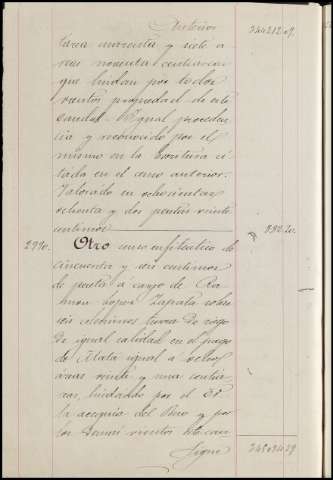 Anterior 344212.09.
tarea marcita y siete á
reas noventa centiareas
que lindan por todos
vientos propiedad de este
caudal. Igual proceden
cia y reconocido por el
mismo en la escritura ci
tada en el censo anterior.
Valorado en ochocientas
ochenta y dos pesetas veinte
centimos 882.20.
2990. Otro censo enfitéutico de
cincuenta y seis centimos
de peseta a cargo de Ra
mon Lopez Zapata sobre
seis celemines tierra de riego
de igual calidad en el pago
de Alata igual a ocho
áreas veinte y una centia
reas, lindando por el
la acequia del and y por
los demás vientos este cau
Sigue 345094.29